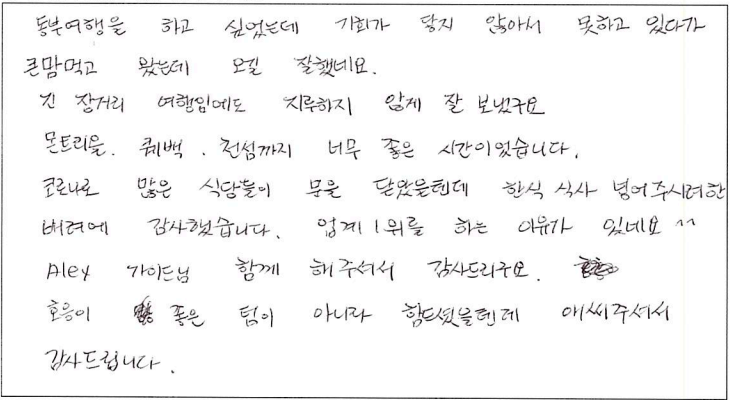 동부여행을 하고 싶었는데 기회가 닿지 않아서 못하고 있다가
큰맘먹고 왔는데 오길 잘했네요.
긴 장거리 여행임에도 지루하지 않게 잘 보냈구요
몬트리올. 퀘백. 천섬까지 너무 좋은 시간이었습니다.
코로나로 많은 식당들이 문을 닫았을텐데 한식 식사 넣어주시려한
배려에 감사했습니다. 업계 1위를 하는 이유가 있네요 ^^
Alex 가이드님 함께 해주셔서 감사드리구요.
호응이 좋은 팀이 아니라 힘드셨을텐데 애써주셔서
감사드립니다.